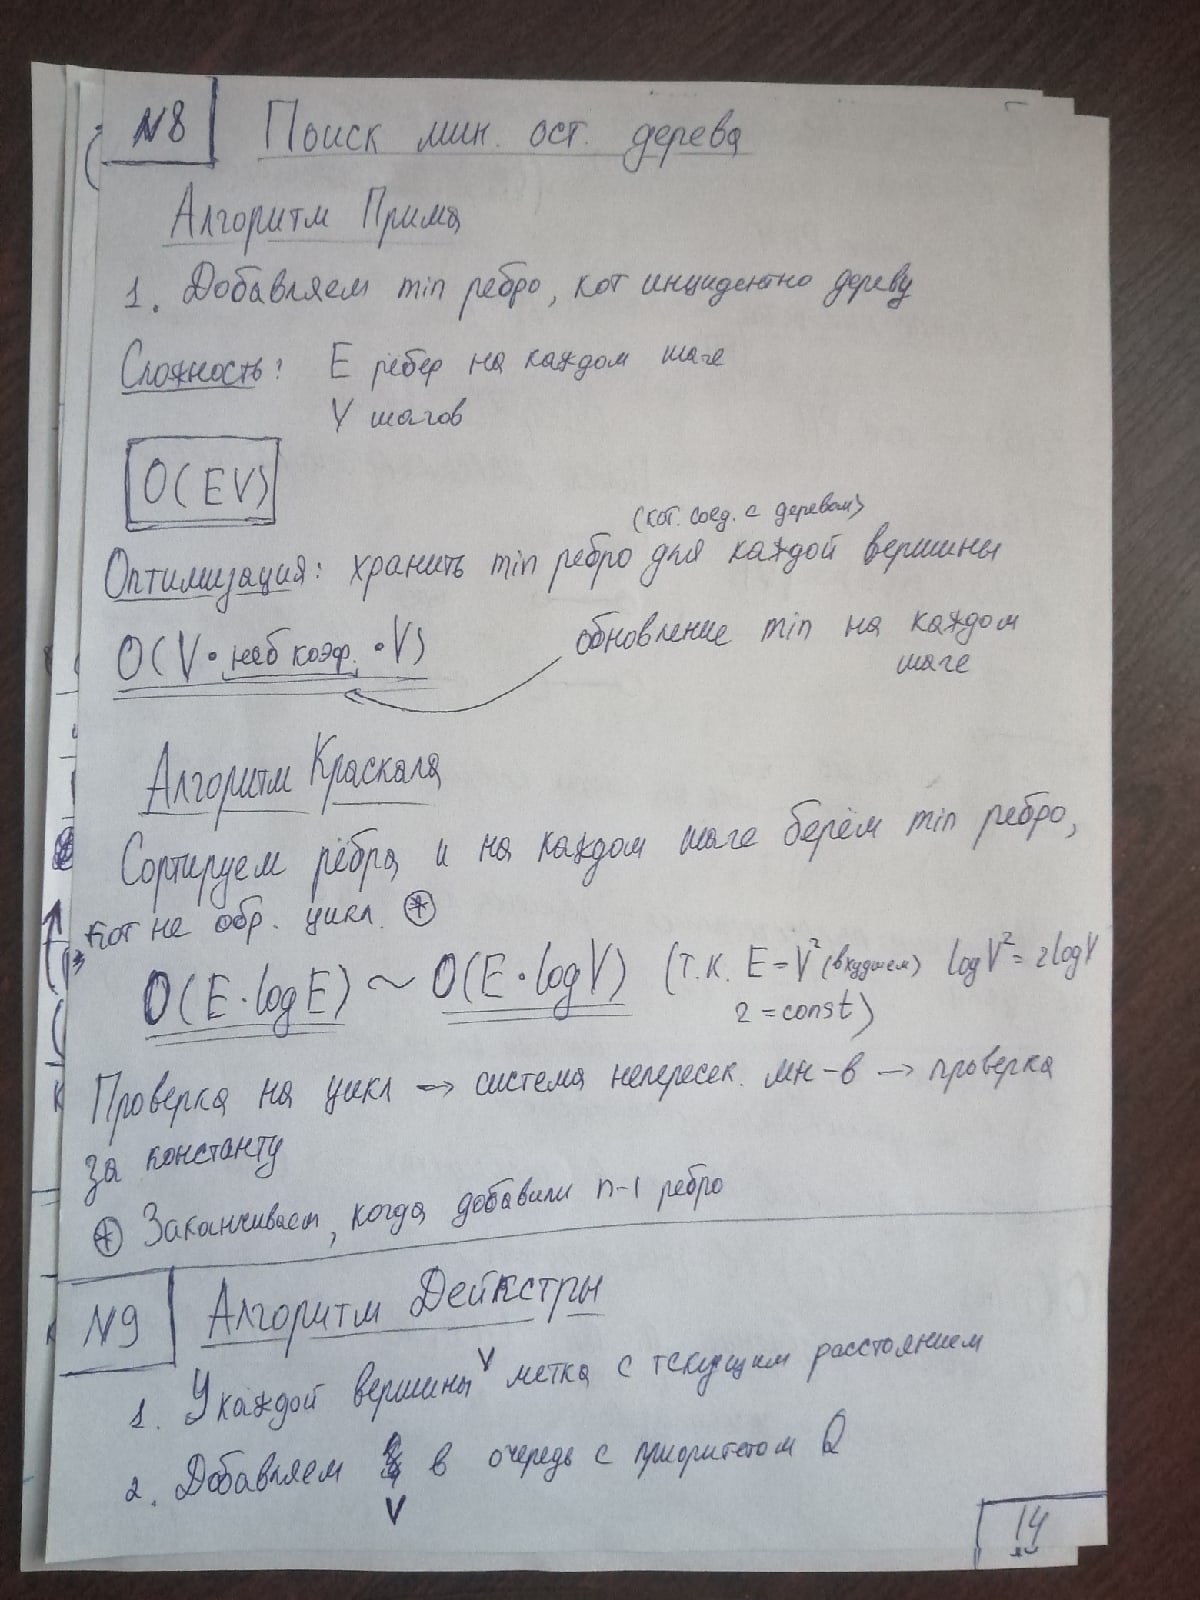 №8 Поиск мин. ост. дерева
Алгоритм Прима
1. Добавляем min ребро, кот инцидентно дереву
Сложность: E рёбер на каждом шаге
V шагов
O(EV)
(кот. соед. с деревом)
Оптимизация: хранить min ребро для каждой вершины
O(V • неб коэф. • V)
обновление min на каждом
шаге
Алгоритм Краскала
Сортируем рёбра и на каждом шаге берём min ребро,
кот не обр. цикл. ⊛
O(E·logE) ~ O(E·logV) (т.к. E=V² (в худшем) logV²=2logV
2=const)
Проверка на цикл → система непересек. мн-в → проверка
за константу
⊛ Заканчиваем, когда добавили n-1 ребро
№9 Алгоритм Дейкстры
1. У каждой вершины v метка с текущим расстоянием
2. Добавляем v в очередь с приоритетом Q
14